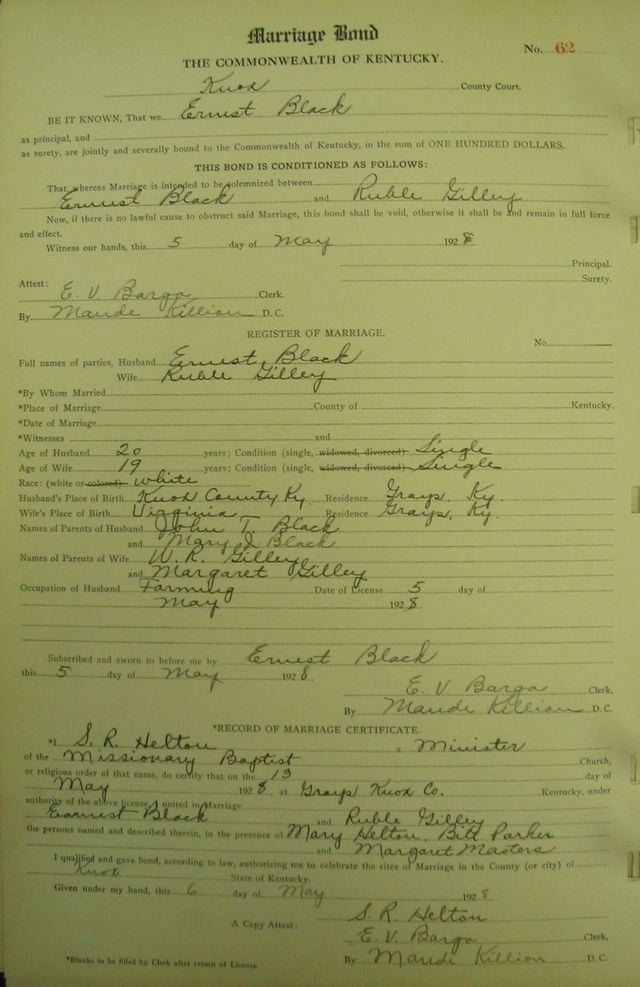 Marriage Bond
No. 62
THE COMMONWEALTH OF KENTUCKY.
Knox County Court.
BE IT KNOWN, That we Ernest Black
as principal, and
as surety, are jointly and severally bound to the Commonwealth of Kentucky, in the sum of ONE HUNDRED DOLLARS.
THIS BOND IS CONDITIONED AS FOLLOWS:
That, whereas Marriage is intended to be solemnized between
Ernest Black and Ruble Gilley
Now, if there is no lawful cause to obstruct said Marriage, this bond shall be void, otherwise it shall be and remain in full force
and effect.
Witness our hands, this 5 day of May 1928
Principal.
Surety.
Attest:
E. V. Barga Clerk.
By Maude Killion D. C.
REGISTER OF MARRIAGE.
No.
Full names of parties, Husband Ernest Black
Wife Ruble Gilley
*By Whom Married
*Place of Marriage County of Kentucky.
*Date of Marriage
*Witnesses and
Age of Husband 20 years; Condition (single, widowed, divorced) Single
Age of Wife 19 years; Condition (single, widowed, divorced) Single
Race: (white or colored) white
Husband's Place of Birth Knox County Ky. Residence Grays, Ky.
Wife's Place of Birth Virginia Residence Grays, Ky.
Names of Parents of Husband John T. Black
and Mary J. Black
Names of Parents of Wife W. R. Gilley
and Margaret Gilley
Occupation of Husband Farming Date of License 5 day of
May 1928
Subscribed and sworn to before me by Ernest Black
this 5 day of May 1928
E. V. Barga Clerk,
By Maude Killion D. C.
*RECORD OF MARRIAGE CERTIFICATE.
*I S. R. Helton a Minister
of the Missionary Baptist Church,
or religious order of that name, do certify that on the 13 day of
May 1928, at Grays Knox Co. Kentucky, under
authority of the above license I united in Marriage
Earnest Black and Ruble Gilley
the persons named and described therein, in the presence of Mary Helton, Bill Parker
and Margaret Masters
I qualified and gave bond, according to law, authorizing me to celebrate the rites of Marriage in the County (or city) of
Knox State of Kentucky.
Given under my hand, this 6 day of May 1928
S. R. Helton
A Copy Attest: E. V. Barga Clerk,
*Blanks to be filled by Clerk after return of License By Maude Killion D. C.